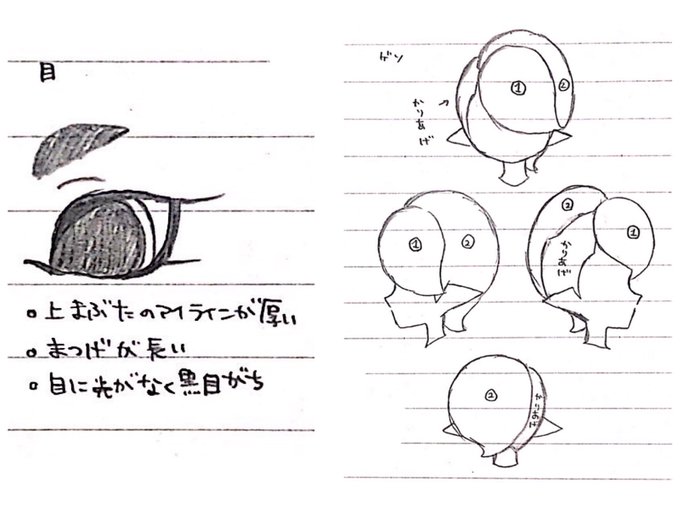 目
○上まぶたのアイラインが厚い
○まつげが長い
○目に光がなく黒目がち
ゲン
かりあげ
①
②
①
②
②
かりあげ
①
②
かりあげ